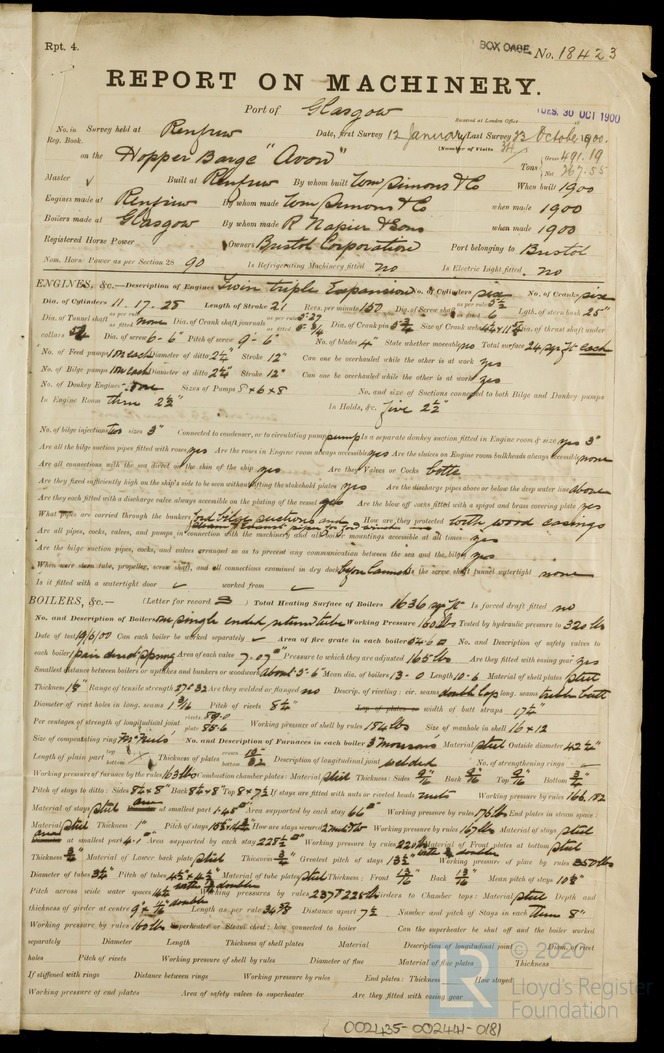 Rpt. 4.
BOX No. 18423
REPORT ON MACHINERY.
Port of Glasgow
Received at London Office TUES. 30 OCT 1900
No. in Reg. Book. Survey held at Renfrew Date, first Survey 12 January Last Survey 23 October 1900.
(Number of Visits
on the Hopper Barge "Avon" Tons Gross 491.19 Net 267.55
Master Built at Renfrew By whom built Wm Simons & Co When built 1900
Engines made at Renfrew By whom made Wm Simons & Co when made 1900
Boilers made at Glasgow By whom made R Napier & Sons when made 1900
Registered Horse Power Owners Bristol Corporation Port belonging to Bristol
Nom. Horse Power as per Section 28 90 Is Refrigerating Machinery fitted no Is Electric Light fitted no
ENGINES, &c.—Description of Engines Twin triple Expansion No. of Cylinders six No. of Cranks six
Dia. of Cylinders 11 . 17 . 28 Length of Stroke 21 Revs. per minute 150 Dia. of Screw shaft as per rule as fitted 6 Lgth. of stern bush 25"
Dia. of Tunnel shaft as per rule as fitted none Dia. of Crank shaft journals as per rule 5.27 as fitted Dia. of Crank pin Size of Crank webs Dia. of thrust shaft under
collars Dia. of screw 6-6 Pitch of screw 9-6 No. of blades 4 State whether moveable no Total surface 24 sq ft each
No. of Feed pumps 1 in each Diameter of ditto 2¼" Stroke 12" Can one be overhauled while the other is at work yes
No. of Bilge pumps 1 in each Diameter of ditto 2¼" Stroke 12" Can one be overhauled while the other is at work yes
No. of Donkey Engines one Sizes of Pumps 8 x 6 x 8 No. and size of Suctions connected to both Bilge and Donkey pumps
In Engine Room three 2½" In Holds, &c. five 2½"
No. of bilge injections two sizes 3" Connected to condenser, or to circulating pump pump Is a separate donkey suction fitted in Engine room & size yes 3"
Are all the bilge suction pipes fitted with roses yes Are the roses in Engine room always accessible yes Are the sluices on Engine room bulkheads always accessible none
Are all connections with the sea direct on the skin of the ship yes Are they Valves or Cocks both
Are they fixed sufficiently high on the ship's side to be seen without lifting the stokehold plates yes Are the discharge pipes above or below the deep water line above
Are they each fitted with a discharge valve always accessible on the plating of the vessel yes Are the blow off cocks fitted with a spigot and brass covering plate yes
What pipes are carried through the bunkers ford bilge suctions and steam & exhaust pipes for ford winches How are they protected with wood casings
Are all pipes, cocks, valves, and pumps in connection with the machinery and all boiler mountings accessible at all times yes
Are the bilge suction pipes, cocks, and valves arranged so as to prevent any communication between the sea and the bilges yes
When were stern tube, propeller, screw shaft, and all connections examined in dry dock before launch Is the screw shaft tunnel watertight none
Is it fitted with a watertight door worked from
BOILERS, &c.— (Letter for record S) Total Heating Surface of Boilers 1636 sq ft Is forced draft fitted no
No. and Description of Boilers one single ended return tube Working Pressure 160 lbs Tested by hydraulic pressure to 320 lbs
Date of test 19/6/00 Can each boiler be worked separately Area of fire grate in each boiler No. and Description of safety valves to
each boiler 1 pair direct spring Area of each valve 7.07" Pressure to which they are adjusted 165 lbs Are they fitted with easing gear yes
Smallest distance between boilers or uptakes and bunkers or woodwork about 5'-6" Mean dia. of boilers 13-0 Length 10-6 Material of shell plates steel
Thickness Range of tensile strength 27 & 32 Are they welded or flanged no Descrip. of riveting: cir. seams double lap long. seams treble butt
Diameter of rivet holes in long. seams 1 3/16 Pitch of rivets Lap of plates or width of butt straps 17¼"
Per centages of strength of longitudinal joint rivets 89.0 plate 85.6 Working pressure of shell by rules 184 lbs Size of manhole in shell 16 x 12
Size of compensating ring McNeil's No. and Description of Furnaces in each boiler 3 Morison's Material steel Outside diameter 42½"
Length of plain part top bottom Thickness of plates crown bottom Description of longitudinal joint welded No. of strengthening rings
Working pressure of furnace by the rules 163 lbs Combustion chamber plates: Material steel Thickness: Sides 9/16" Back 9/16" Top 9/16" Bottom ¾"
Pitch of stays to ditto: Sides Back Top If stays are fitted with nuts or riveted heads nuts Working pressure by rules
Material of stays steel at smallest part 1.48" Area supported by each stay 66" Working pressure by rules 176 lbs End plates in steam space:
Material steel Thickness 1" Pitch of stays How are stays secured Working pressure by rules 167 lbs Material of stays steel
at smallest part Area supported by each stay Working pressure by rules 220 lbs Material of Front plates at bottom steel
Thickness ¾" Material of Lower back plate steel Thickness ¾" Greatest pitch of stays 13½" Working pressure of plate by rules 350 lbs
Diameter of tubes 3¼" Pitch of tubes 4½" x 4½" Material of tube plates steel Thickness: Front 13/16" Back 13/16" Mean pitch of stays
Pitch across wide water spaces Working pressures by rules 237 & 228 lbs Girders to Chamber tops: Material steel Depth and
thickness of girder at centre double Length as per rule Distance apart 7½ Number and pitch of Stays in each three 8"
Working pressure by rules 160 lbs Superheater or Steam chest; how connected to boiler Can the superheater be shut off and the boiler worked
separately Diameter Length Thickness of shell plates Material Description of longitudinal joint Diam. of rivet
holes Pitch of rivets Working pressure of shell by rules Diameter of flue Material of flue plates Thickness
If stiffened with rings Distance between rings Working pressure by rules End plates: Thickness How stayed
Working pressure of end plates Area of safety valves to superheater Are they fitted with easing gear
© 2020
Lloyd's Register
Foundation
LR
002435-002441-0181